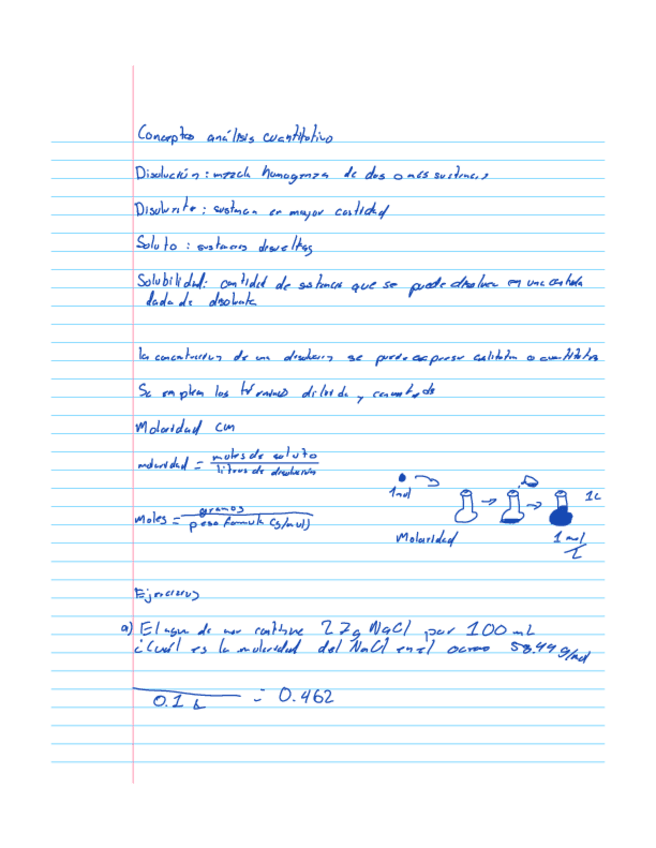 Conceptos análisis cuantitativo
Disolución: mezcla homogenea de dos o más sustancias
Disolvente: sustancia en mayor cantidad
Soluto: sustancias disueltas
Solubilidad: cantidad de sustancia que se puede disolver en una cantidad
dada de disolvente
la concentración de una disolución se puede expresar cualitativa o cuantitativa
Se emplean los términos diluida y concentrada
Molaridad CM
molaridad = moles de soluto / litros de disolución
moles = gramos / peso formula (g/mol)
1mol
1L
Molaridad
1 mol / L
Ejercicios
a) El agua de mar contiene 2.7g NaCl por 100 mL
¿Cuál es la molaridad del NaCl en el oceano 58.44 g/mol
/ 0.1 L = 0.462